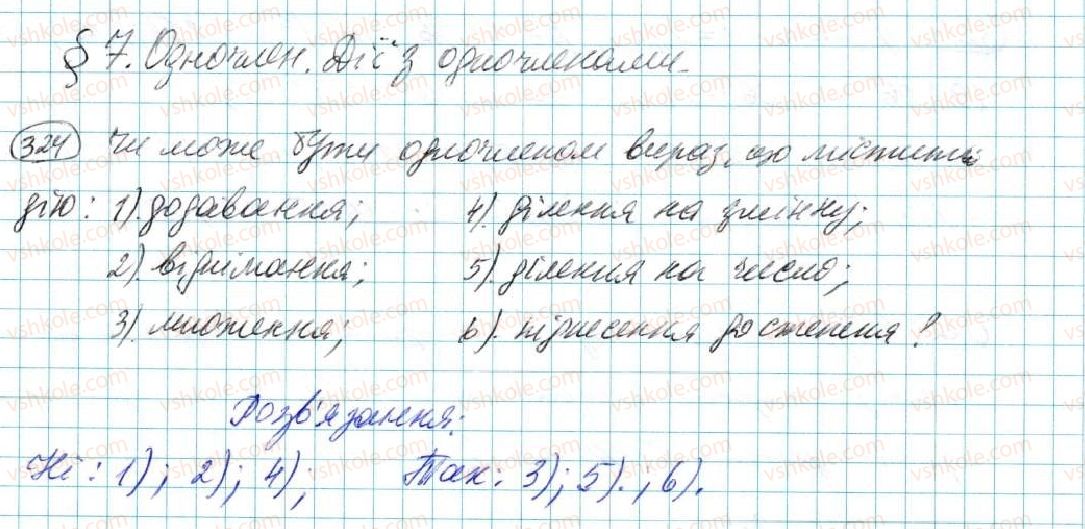 § 7. Одночлен. Дії з одночленами.
324 Чи може бути одночленом вираз, що містить
дію: 1). додавання; 4). ділення на змінну;
2). віднімання; 5). ділення на число;
3). множення; 6). піднесення до степеня?
Розв'язання:
Ні: 1); 2); 4); Так: 3); 5).; 6).